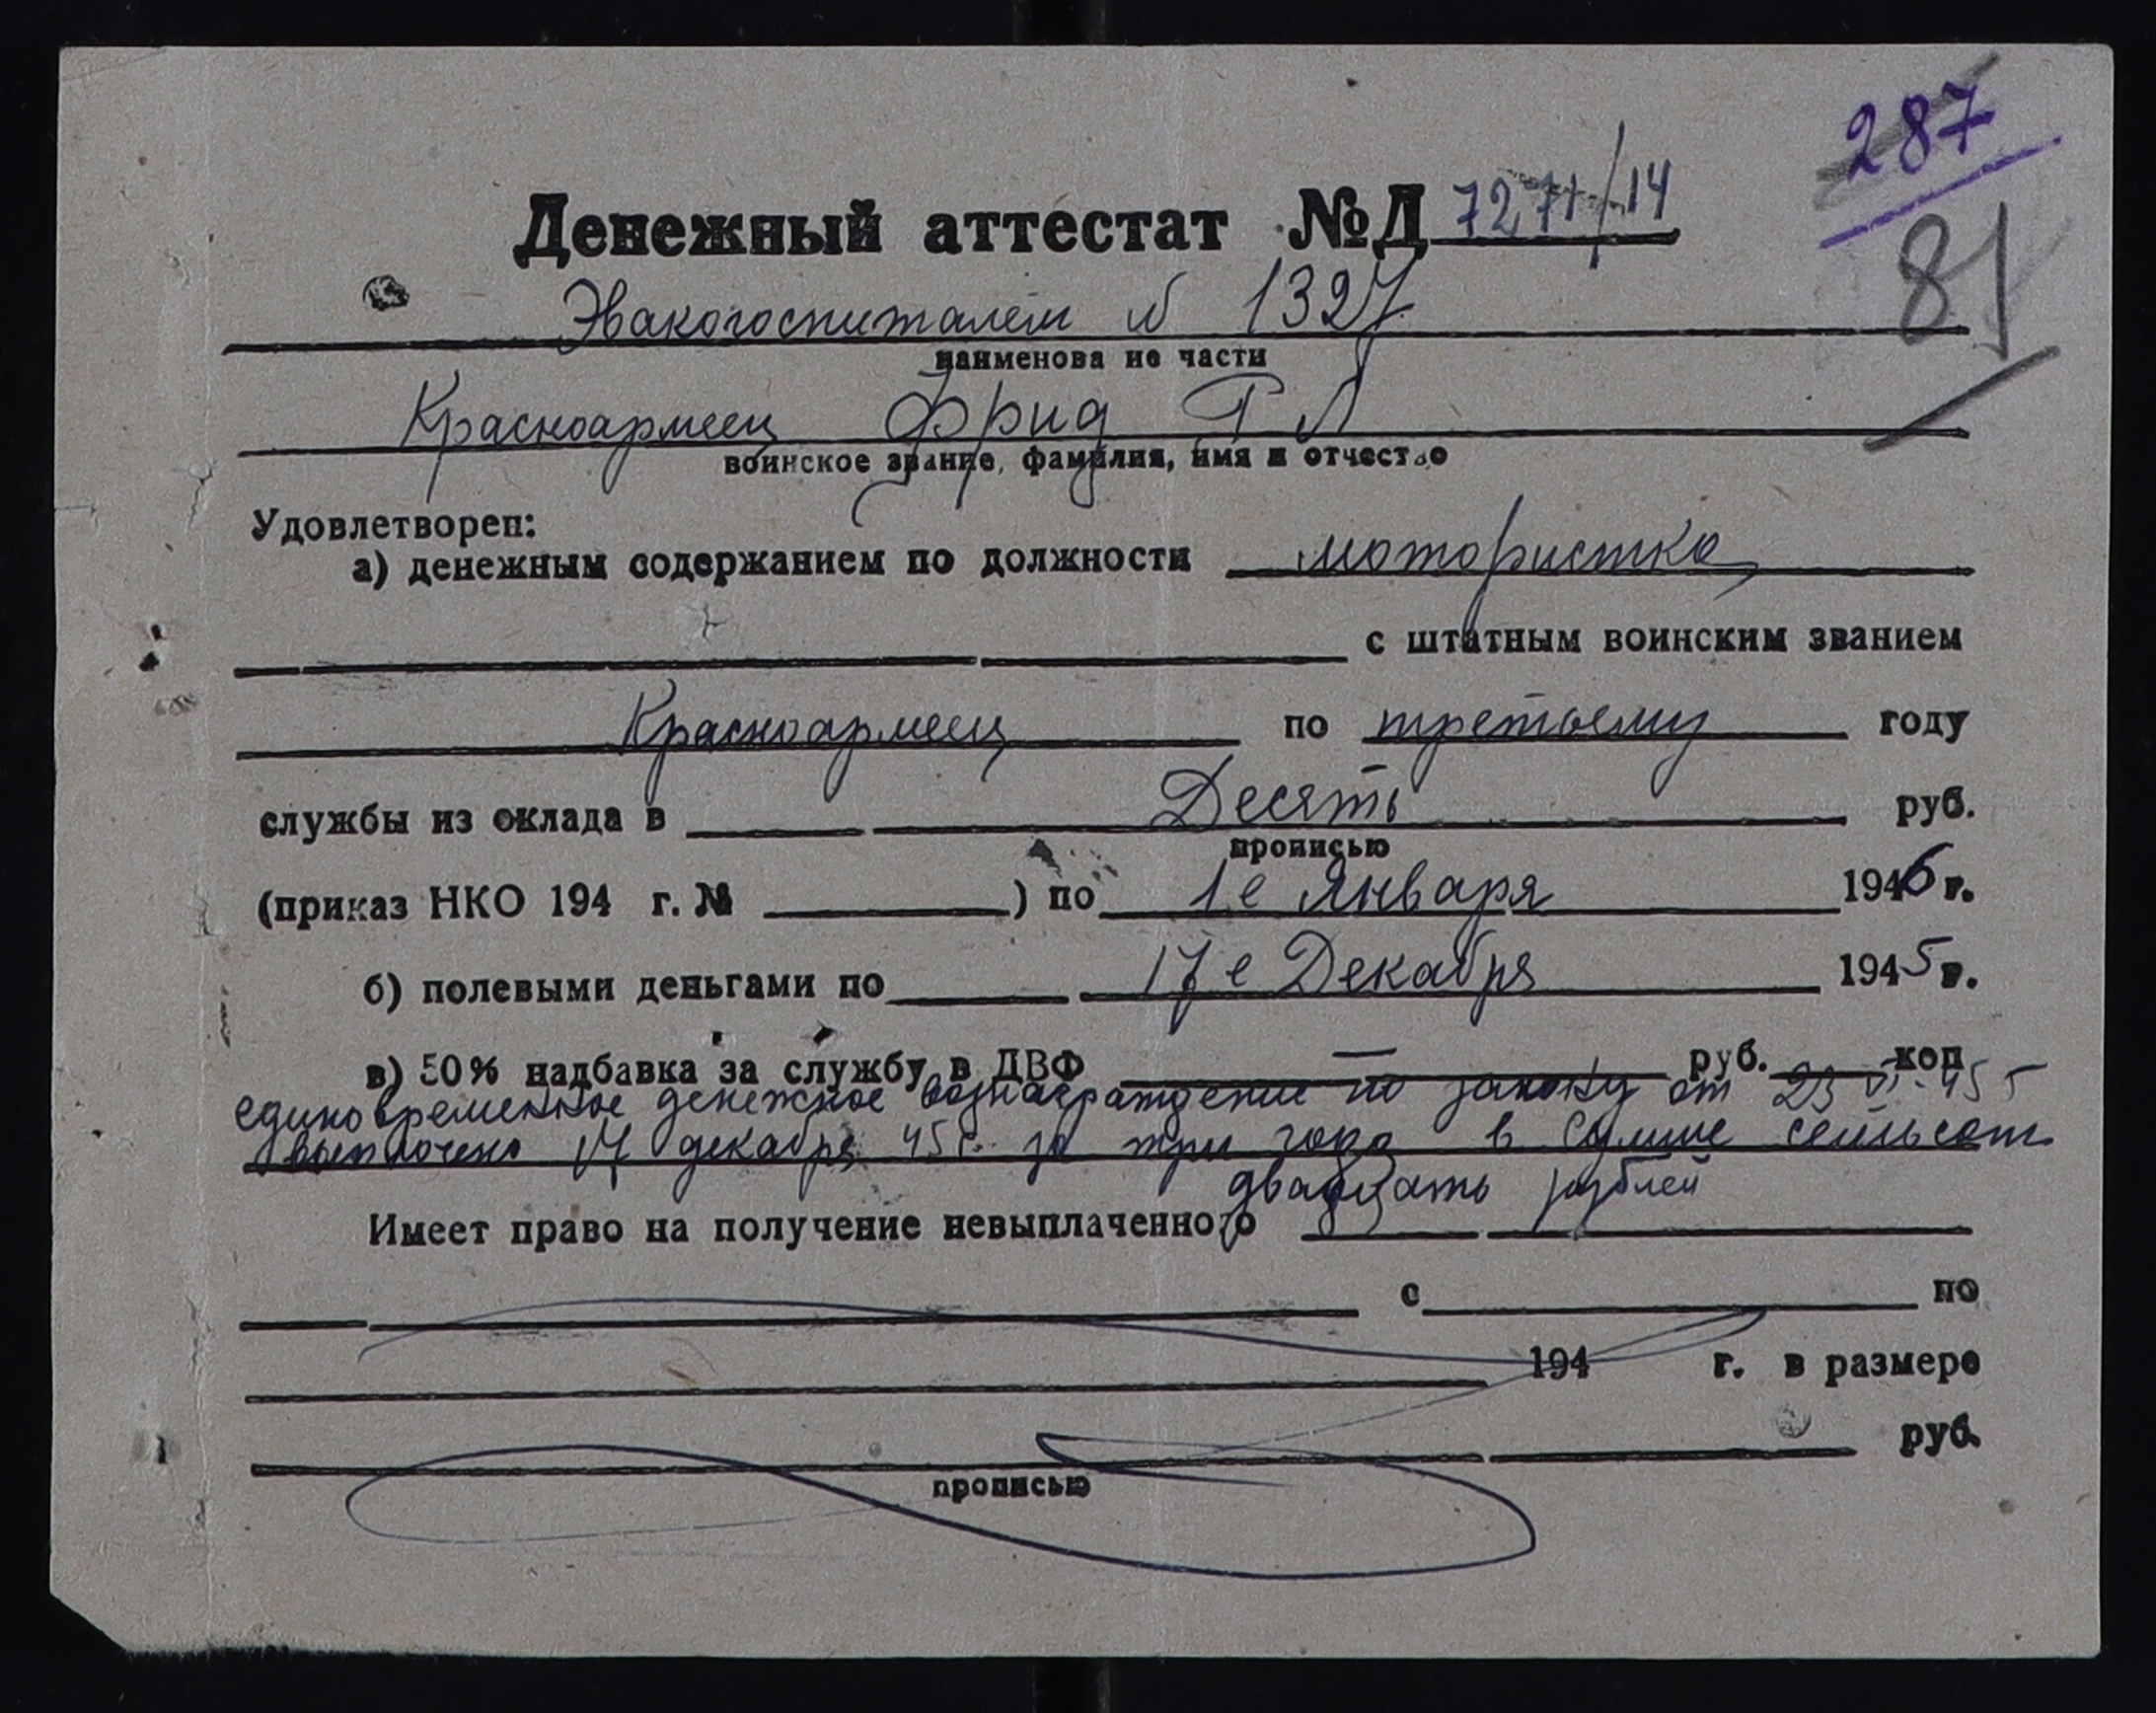 287
81
Денежный аттестат №Д 7271/14
Эвакогоспиталем № 1327
наименова ие части
Красноармеец Фрид Р Л
воинское звание, фамилия, имя и отчество
Удовлетворен:
а) денежным содержанием по должности мотористка
с штатным воинским званием
Красноармеец по третьему году
службы из оклада в Десять руб.
прописью
(приказ НКО 194 г. № ) по 1е Января 1946 г.
б) полевыми деньгами по 17е Декабря 1945 г.
в) 50% надбавка за службу в ДВФ — руб. коп
единовременное денежное вознаграждение по закону от 23 VI-45 г
выплочено 17 декабря 45 г. за три года в сумме семьсот
двадцать рублей
Имеет право на получение невыплаченного
с по
194 г. в размере
руб.
прописью